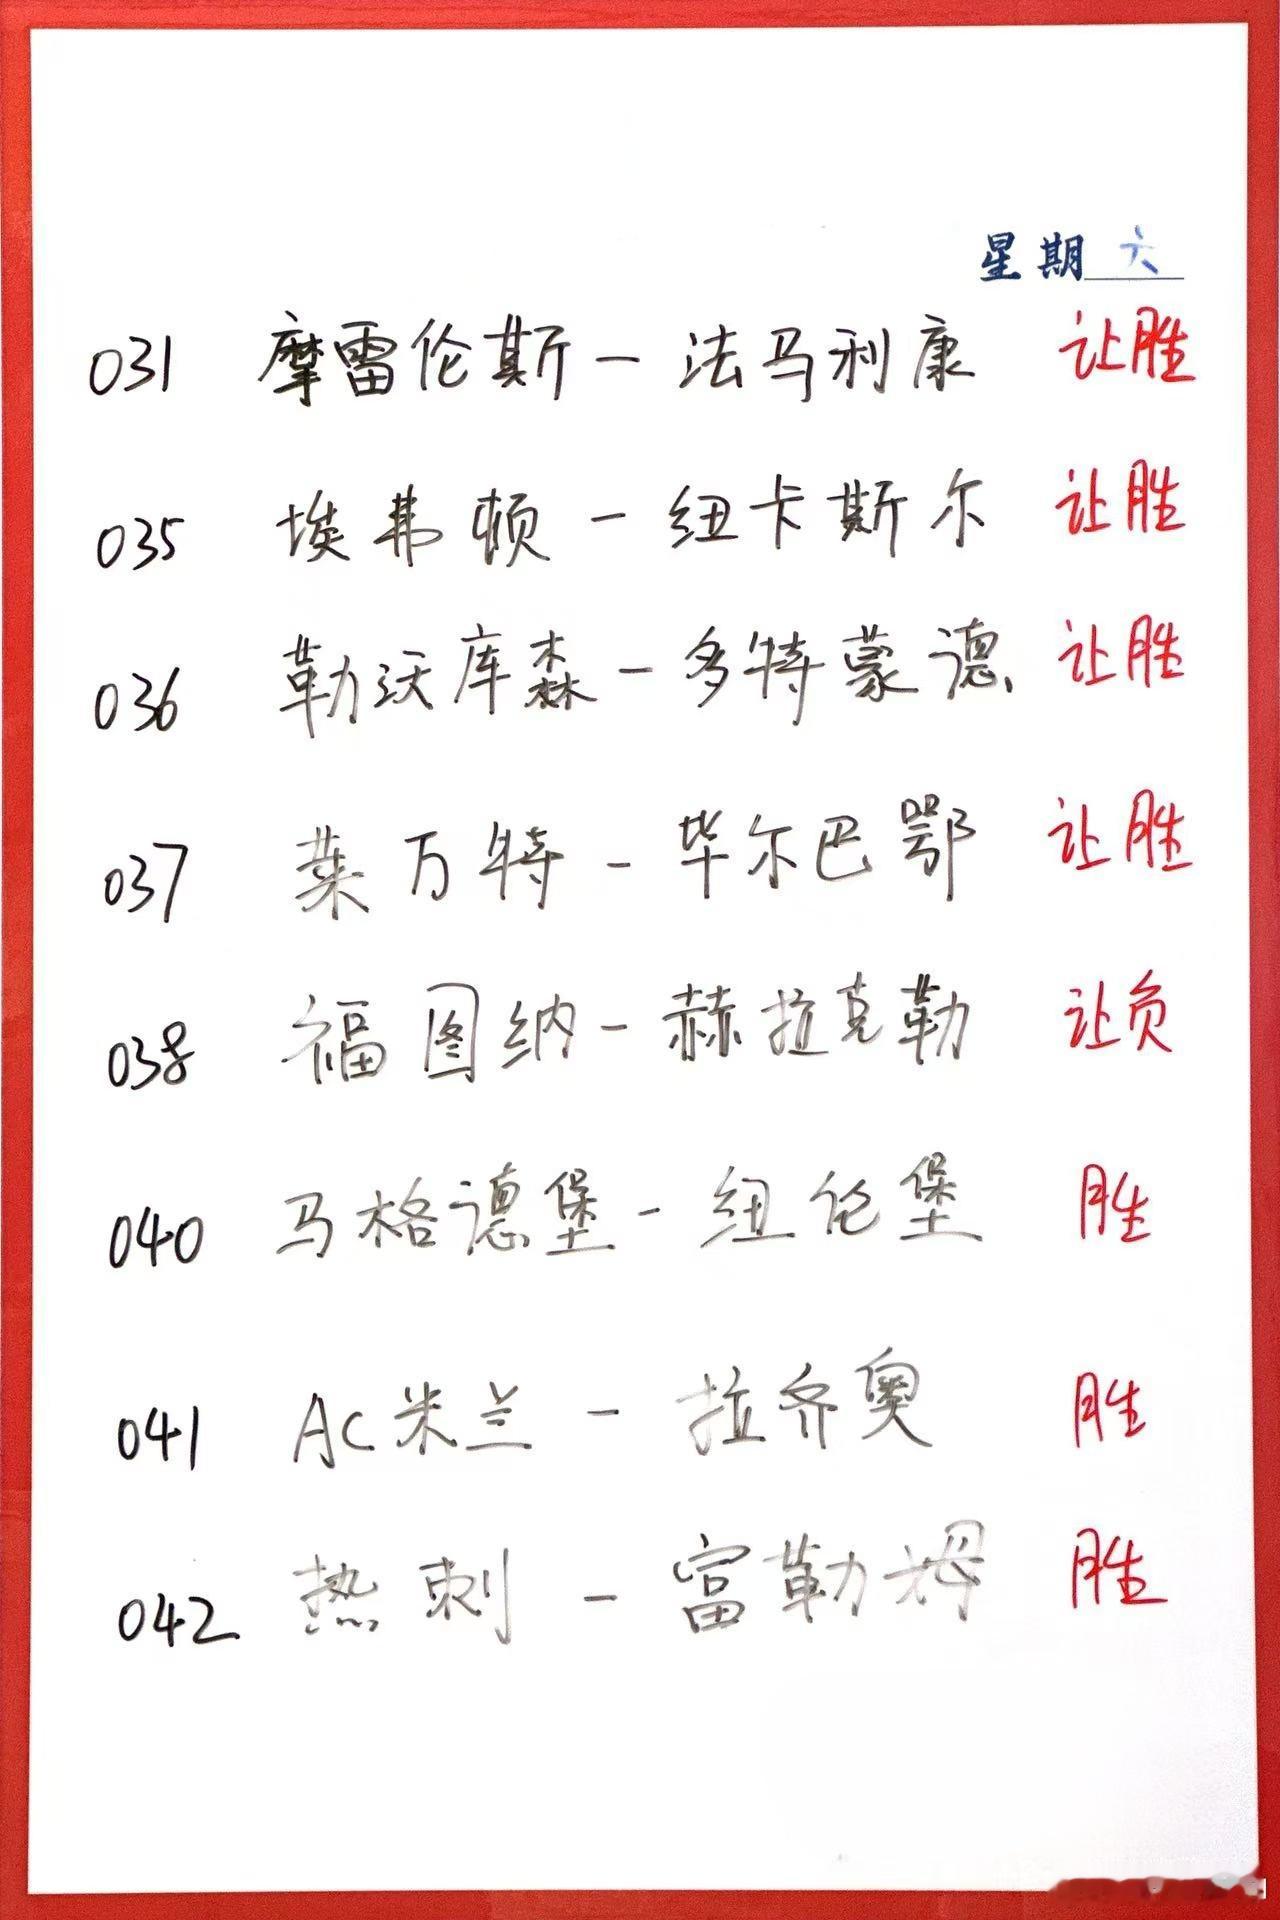 星期六
031 摩雷伦斯－法马利康 让胜
035 埃弗顿－纽卡斯尔 让胜
036 勒沃库森－多特蒙德 让胜
037 莱万特－毕尔巴鄂 让胜
038 福图纳－赫拉克勒 让负
040 马格德堡－纽伦堡 胜
041 AC米兰－拉齐奥 胜
042 热刺－富勒姆 胜